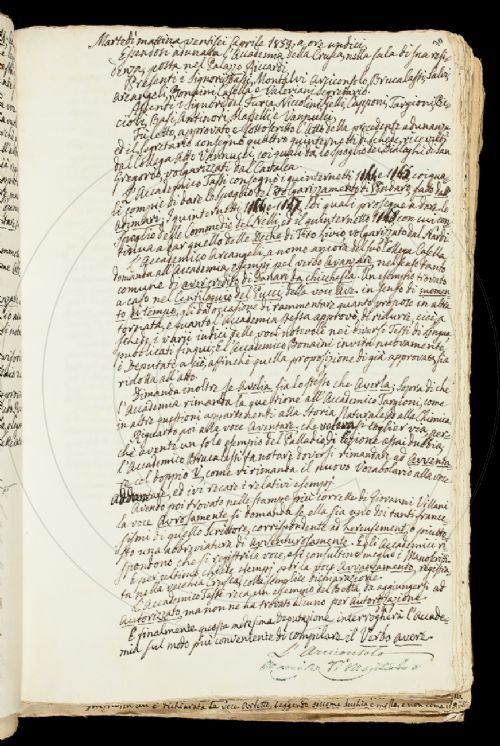 Martedì mattina ventisei Aprile 1853, a ore undici.
Essendosi adunata l'Accademia della Crusca nella sala di sua resi-
denza, posta nel Palazzo Riccardi,
Presenti i Signori Tassi, Montalvi, Arciconsolo, Brucalassi, Salvi
Arcangeli, Casella, e Valeriani Segretario.
Assenti i Signori Del Furia, Niccolini, Gelli, Capponi, Targioni,
Bonaini, Maselli e Vannucci.
Fu letto, approvato e sottoscritto l'Atto della precedente adunanza
ed il Segretario consegnò quattro quinternetti di schede ricevute
dal Collega Atto Vannucci, coi quali dà lo spoglio dei Dialoghi di San
Gregorio volgarizzati dal Cavalca.
L'Accademico Tassi consegnò i quinternetti 1162 e 1163 coi qua-
li compie di dare lo spoglio del Volgarizzamento di Pindaro fatto dall'
Adimari; i quinternetti 1164 - 1167, coi quali prosegue a dare lo
spoglio delle Commedie del Nelli, ed il quinternetto 1168 con cui con-
tinua a dar quello delle Deche di Tito Livio volgarizzato dal Nardi
L'Accademico Arcangeli, a nome ancora del suo Collega Casella,
domanda all'Accademia esempj del verbo Avanzare, nel fatto tanto
comune di aver credito di denari da chicchessia. Un esempio trovato
a caso nel Centiloquio del Pucci della voce Ave. in senso di momen-
to di tempo, gli dà occasione di rammentare quanto propose in altra
tornata, e quanto l'Accademia stessa approvò, di ridurre, cioè a
schede, i varj indici delle voci notevoli nei diversi Testi di lingua
pubblicati fin qui; e l'Accademico Bonaini invita nuovamente
i Deputati a ciò, affinchè quella proposizione di già approvata sia
ridotta all'atto.
Dimanda inoltre se Avelia, sia lo stesso che Averla; sopra di che
l'Accademia rimanda la questione all'Accademico Targioni, come
in altre questioni appartenenti alla Storia Naturale ed alla Chimica.
Riguardo poi alla voce Aventare, che voleva si toglier via, per-
chè avente un solo esempio del Palladio di lezione assai dubbia,
l'Accademico Brucalassi fa notare doversi rimandare ad Avventa-
re col doppio V, come vi rimanda il nuovo Vocabolario alla voce
ed ivi recare i relativi esempj
Avendo poi trovato nelle stampe più corrette di Giovanni Villani
la voce Avrosamente si domanda se ella sia uno dei tanti france-
sismi di quello Scrittore, corrispondente ad heureusement, o piutto-
sto una abbreviatura di Avventurosamente. E gli Accademici ri-
spondono che si registri la voce, e si consultino meglio i Manoscritti.
E per ultimo chiede esempj sopra la voce Avversamento, registra-
ta nella vecchia Crusca colla semplice dichiarazione.
L'Accademico Tassi reca un esempio del Botta da aggiungersi ad
Autorizzato, ma non ne ha trovato alcuno per Autorizzazione.
E finalmente questa medesima Deputazione interrogherà l'Accade-
mia sul modo più conveniente di compilare il Verbo avere
L'Arciconsolo